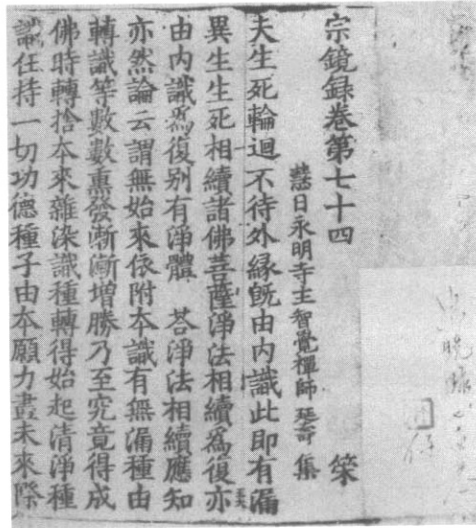 宗鏡録巻第七十四 榘
慧日永明寺主智覺禪師延壽集
夫生死輪迴不待外縁旣由内識此即有漏
異生生死相續諸佛菩薩淨法相續爲復亦
由内識爲復别有淨體 荅淨法相續應知
亦然論云謂無始來依附本識有無漏種由
轉識等數數熏發漸漸增勝乃至究竟得成
佛時轉捨本來雜染識種轉得始起清淨種
識任持一切功德種子由本願力盡未來際